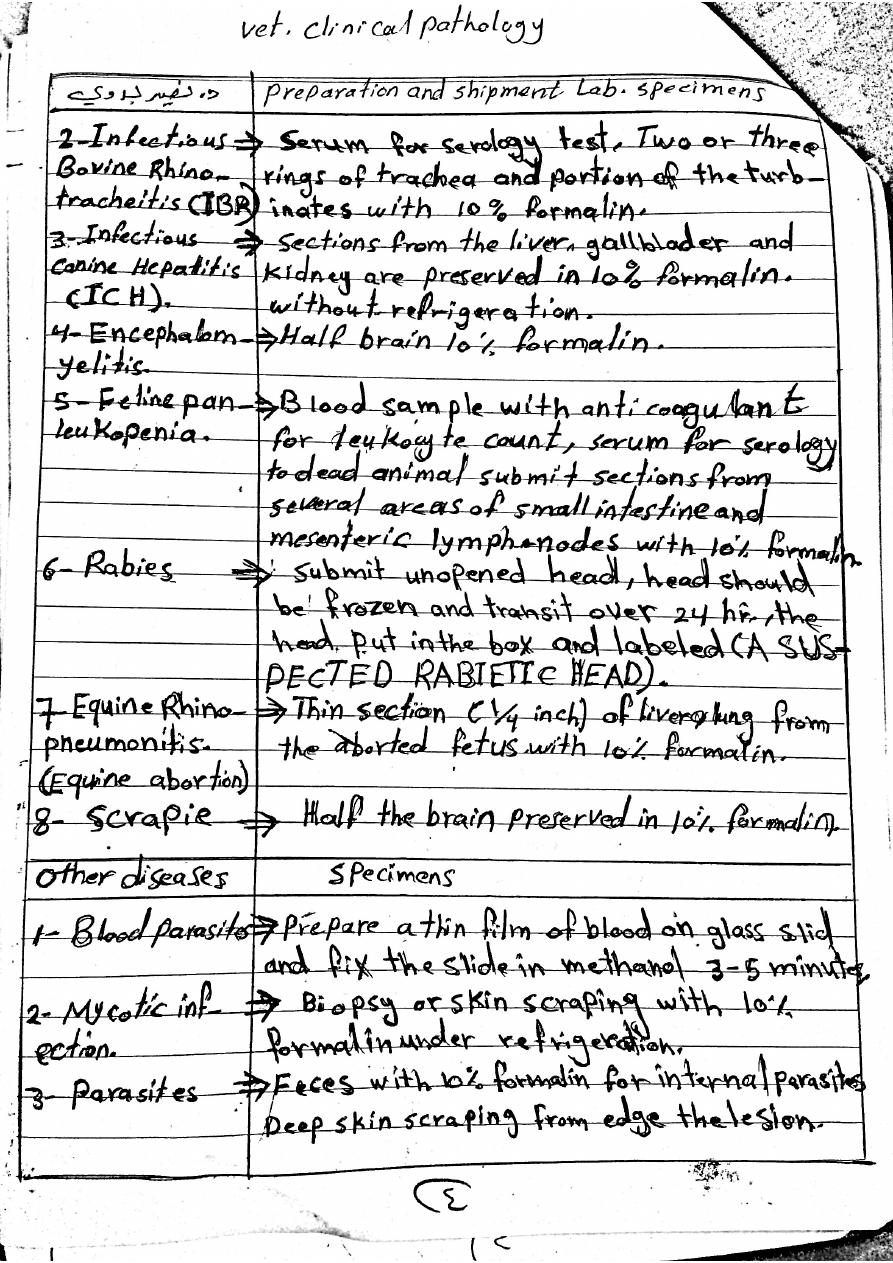 vet. clinical pathology
Preparation and shipment Lab. specimens
2-Infectious ⇒ Serum for serology test. Two or three
Bovine Rhino- rings of trachea and portion of the turb-
tracheitis (IBR) inates with 10% formalin.
3-Infectious ⇒ sections from the liver, gallblader and
Canine Hepatitis kidney are preserved in 10% formalin.
(ICH). without refrigeration.
4-Encephalom- ⇒ Half brain 10% formalin.
yelitis.
5-Feline pan- ⇒ Blood sample with anti coagulant
leukopenia. for leukocyte count, serum for serology
to dead animal submit sections from
several areas of small intestine and
mesenteric lymphnodes with 10% formalin.
6-Rabies ⇒ submit unopened head, head should
be frozen and transit over 24 hr., the
head put in the box and labeled (A SUS-
PECTED RABIETIC HEAD).
7-Equine Rhino- ⇒ Thin section (1/4 inch) of liver, lung from
pneumonitis. the aborted fetus with 10% formalin.
(Equine abortion)
8- Scrapie ⇒ Half the brain preserved in 10% formalin.
Other diseases specimens
1- Blood Parasite ⇒ Prepare a thin film of blood on glass slid
and fix the slide in methanol 3-5 minutes,
2- Mycotic inf- ⇒ Biopsy or skin scraping with 10%
ection. formalin under refrigeration.
3- Parasites ⇒ Feces with 10% formalin for internal parasites
Deep skin scraping from edge the lesion.
٤